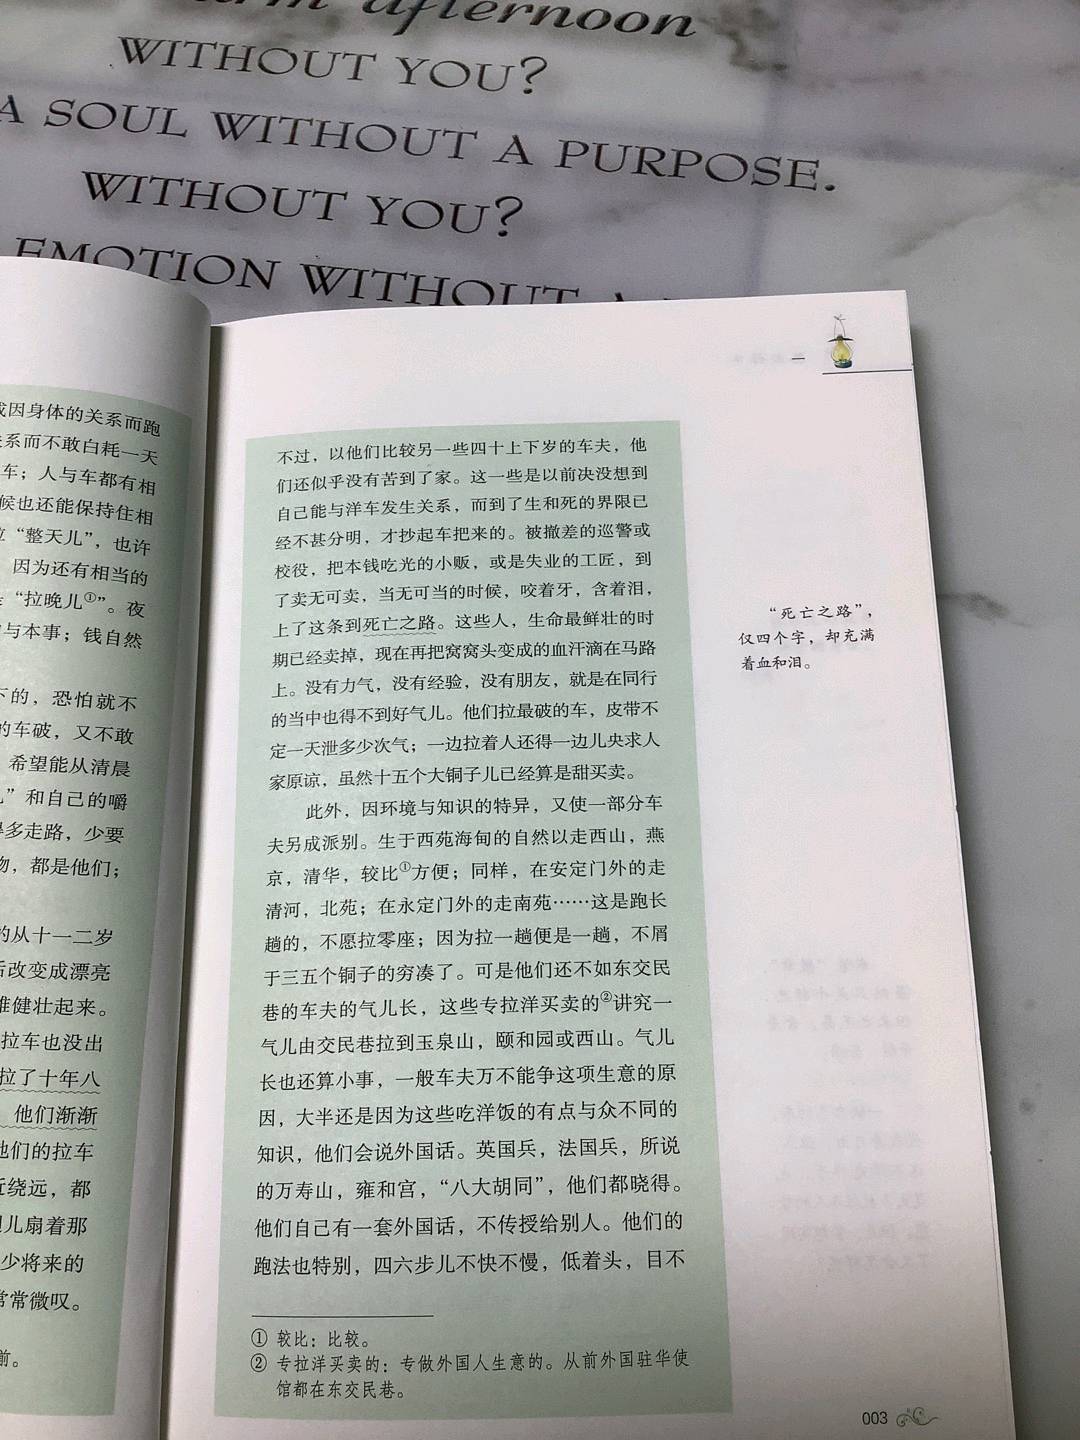 afternoon
WITHOUT YOU?
A SOUL WITHOUT A PURPOSE.
WITHOUT YOU?
EMOTION WITHOUT A
因身体的关系而跑
系而不敢白耗一天
车；人与车都有相
候也还能保持住相
“整天儿”，也许
因为还有相当的
“拉晚儿①”。夜
与本事；钱自然
下的，恐怕就不
的车破，又不敢
希望能从清晨
”和自己的嚼
多走路，少要
物，都是他们；
的从十一二岁
后改变成漂亮
健壮起来。
拉车也没出
拉了十年八
他们渐渐
他们的拉车
近绕远，都
儿扇着那
少将来的
常常微叹。
前。
一
不过，以他们比较另一些四十上下岁的车夫，他
们还似乎没有苦到了家。这一些是以前决没想到
自己能与洋车发生关系，而到了生和死的界限已
经不甚分明，才抄起车把来的。被撤差的巡警或
校役，把本钱吃光的小贩，或是失业的工匠，到
了卖无可卖，当无可当的时候，咬着牙，含着泪，
上了这条到死亡之路。这些人，生命最鲜壮的时
期已经卖掉，现在再把窝窝头变成的血汗滴在马路
上。没有力气，没有经验，没有朋友，就是在同行
的当中也得不到好气儿。他们拉最破的车，皮带不
定一天泄多少次气；一边拉着人还得一边儿央求人
家原谅，虽然十五个大铜子儿已经算是甜买卖。
此外，因环境与知识的特异，又使一部分车
夫另成派别。生于西苑海甸的自然以走西山，燕
京，清华，较比①方便；同样，在安定门外的走
清河，北苑；在永定门外的走南苑……这是跑长
趟的，不愿拉零座；因为拉一趟便是一趟，不屑
于三五个铜子的穷凑了。可是他们还不如东交民
巷的车夫的气儿长，这些专拉洋买卖的②讲究一
气儿由交民巷拉到玉泉山，颐和园或西山。气儿
长也还算小事，一般车夫万不能争这项生意的原
因，大半还是因为这些吃洋饭的有点与众不同的
知识，他们会说外国话。英国兵，法国兵，所说
的万寿山，雍和宫，“八大胡同”，他们都晓得。
他们自己有一套外国话，不传授给别人。他们的
跑法也特别，四六步儿不快不慢，低着头，目不
① 较比：比较。
② 专拉洋买卖的：专做外国人生意的。从前外国驻华使
馆都在东交民巷。
“死亡之路”，
仅四个字，却充满
着血和泪。
003